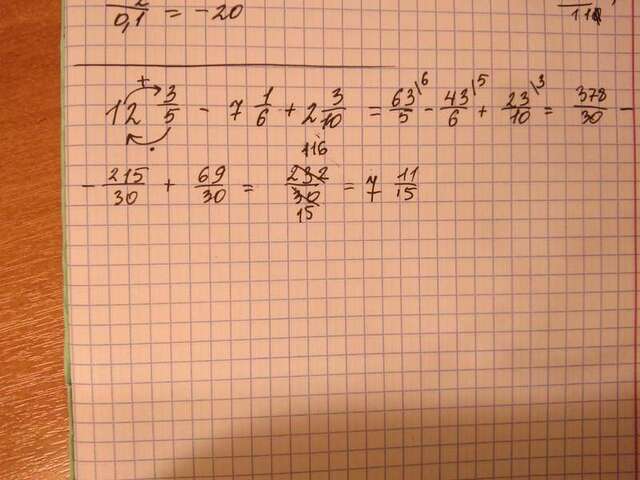 2/0,1 = -20
11
12 3/5 - 7 1/6 + 2 3/10 = 63/5 \6 - 43/6 \5 + 23/10 \3 = 378/30 -
- 215/30 + 69/30 = 232/30 116/15 = 7 11/15